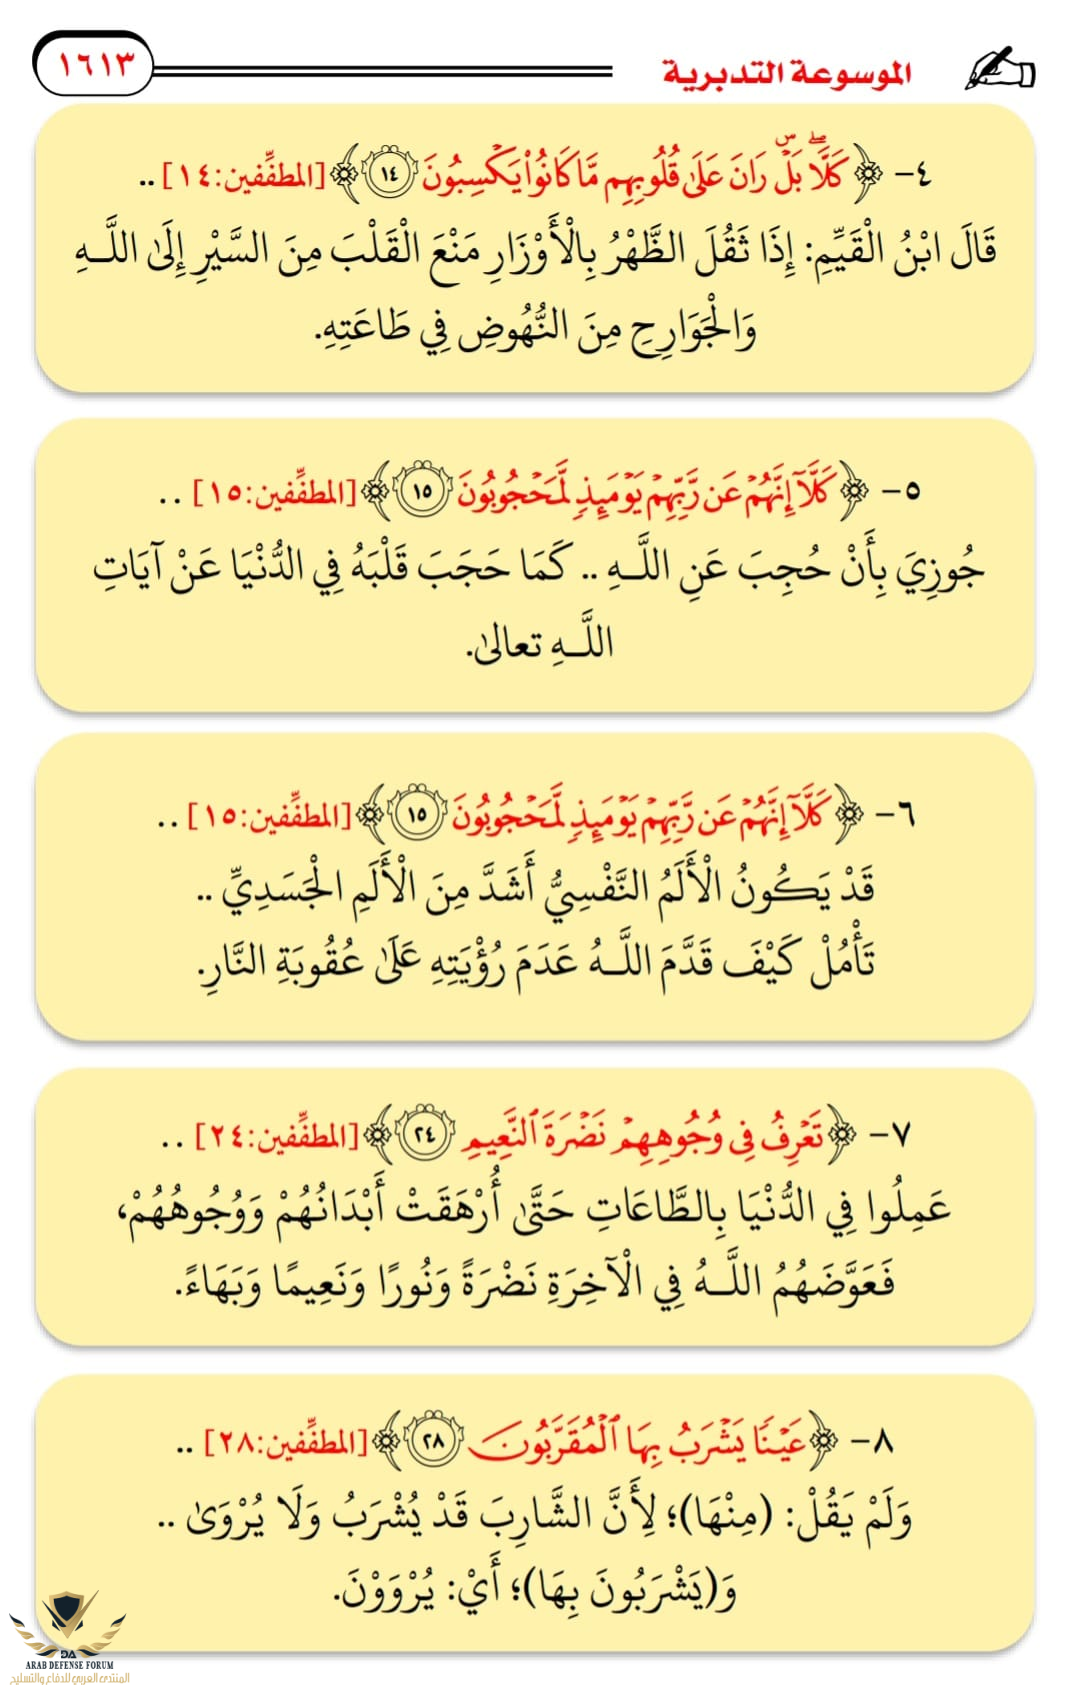 الموسوعة التدبرية
١٦١٣
٤- ﴿كَلَّا ۖ بَلْ ۜ رَانَ عَلَىٰ قُلُوبِهِم مَّا كَانُوا۟ يَكْسِبُونَ ١٤﴾ [المطفِّفين:١٤] ..
قَالَ ابْنُ الْقَيِّمِ: إِذَا ثَقُلَ الظَّهْرُ بِالْأَوْزَارِ مَنْعَ الْقَلْبَ مِنَ السَّيْرِ إِلَىٰ اللَّـهِ
وَالْجَوَارِحِ مِنَ النُّهُوضِ فِي طَاعَتِهِ.
٥- ﴿كَلَّآ إِنَّهُمْ عَن رَّبِّهِمْ يَوْمَئِذٍ لَّمَحْجُوبُونَ ١٥﴾ [المطفِّفين:١٥] ..
جُوزِيَ بِأَنْ حُجِبَ عَنِ اللَّـهِ .. كَمَا حَجَبَ قَلْبَهُ فِي الدُّنْيَا عَنْ آيَاتِ
اللَّـهِ تعالىٰ.
٦- ﴿كَلَّآ إِنَّهُمْ عَن رَّبِّهِمْ يَوْمَئِذٍ لَّمَحْجُوبُونَ ١٥﴾ [المطفِّفين:١٥] ..
قَدْ يَكُونُ الْأَلَمُ النَّفْسِيُّ أَشَدَّ مِنَ الْأَلَمِ الْجَسَدِيِّ ..
تَأْمُلْ كَيْفَ قَدَّمَ اللَّـهُ عَدَمَ رُؤْيَتِهِ عَلَىٰ عُقُوبَةِ النَّارِ.
٧- ﴿تَعْرِفُ فِى وُجُوهِهِمْ نَضْرَةَ ٱلنَّعِيمِ ٢٤﴾ [المطفِّفين:٢٤] ..
عَمِلُوا فِي الدُّنْيَا بِالطَّاعَاتِ حَتَّىٰ أُرْهَقَتْ أَبْدَانُهُمْ وَوُجُوهُهُمْ،
فَعَوَّضَهُمُ اللَّـهُ فِي الْآخِرَةِ نَضْرَةً وَنُورًا وَنَعِيمًا وَبَهَاءً.
٨- ﴿عَيْنًا يَشْرَبُ بِهَا ٱلْمُقَرَّبُونَ ٢٨﴾ [المطفِّفين:٢٨] ..
وَلَمْ يَقُلْ: (مِنْهَا)؛ لِأَنَّ الشَّارِبَ قَدْ يُشْرَبُ وَلَا يُرْوَىٰ ..
وَ(يَشْرَبُونَ بِهَا)؛ أَيْ: يُرْوَوْنَ.
DA
ARAB DEFENSE FORUM
المنتدى العربي للدفاع والتسليح